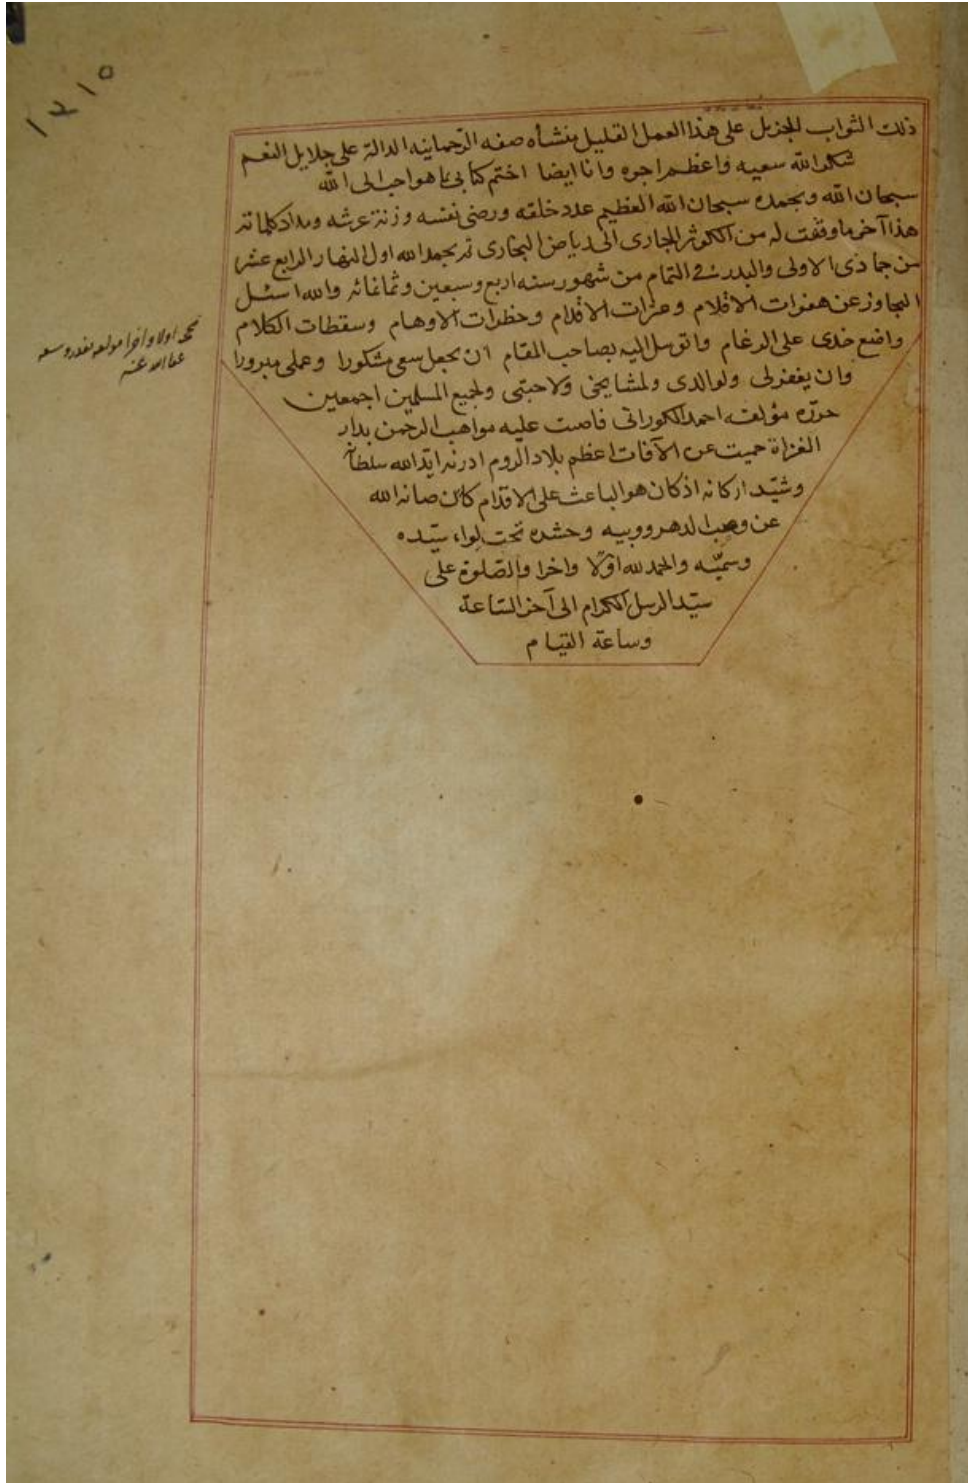 ١٢١٥
ذلك الثواب الجزيل على هذا العمل القليل منشأه صفه الرحمانيه الدالة على جلايل النعم
شكر الله سعيه واعظم اجره وانا ايضا اختم كتابى بما هو احب الى الله
سبحان الله وبحمده سبحان الله العظيم عدد خلقه ورضى نفسه وزنة عرشه ومداد كلماته
هذا آخر ما وفقت له من الكوثر الجارى الى رياض البخارى تم بحمد الله اول النهار الرابع عشر
من جماذى الاولى والبدر فى التمام من شهور سنه اربع وسبعين وثمانمائه والله اسئل
التجاوز عن هفوات الاقلام وعثرات الاقدام وخطرات الاوهام وسقطات الكلام
واضع خدى على الرغام واتوسل اليه بصاحب المقام ان يجعل سعى مشكورا وعملى مبرورا
وان يغفر لى ولوالدى ولمشايخى ولاحبتى ولجميع المسلمين اجمعين
حرره مؤلفه احمد الكورانى فاضت عليه مواهب الرحمن بدار
الغزاة حميت عن الآفات اعظم بلاد الروم ادرنه ايد الله سلطانه
وشيد اركانه اذ كان هو الباعث على الاقدام كان صانه الله
عن الدهر وريبه وحشره تحت لواء سيده
وسميّه والحمد لله اولا واخرا والصلوة على
سيد الرسل الكرام الى آخر الساعة
وساعة القيام
اولا واخرا
عفا الله عنه